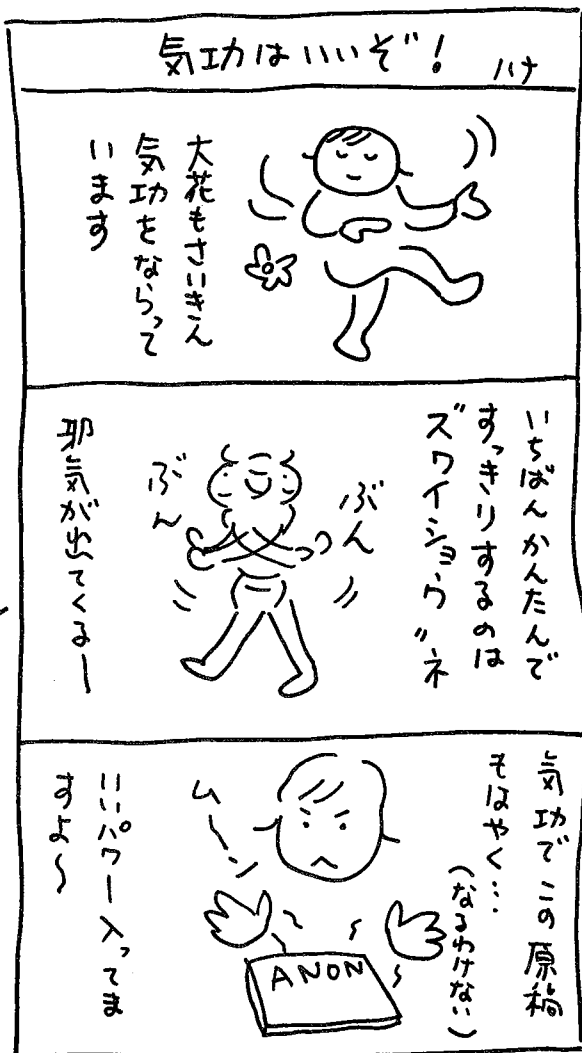 気功はいいぞ！
ハナ
大花もさいきん
気功をならって
います
いちばんかんたんで
すっきりするのは
"ズワイショウ"ネ
ぶん
ぶん
邪気が出てくるー
気功でこの原稿
もはやく…
（なるわけない）
ムーン
ANON
いいパワー入ってま
すよ〜